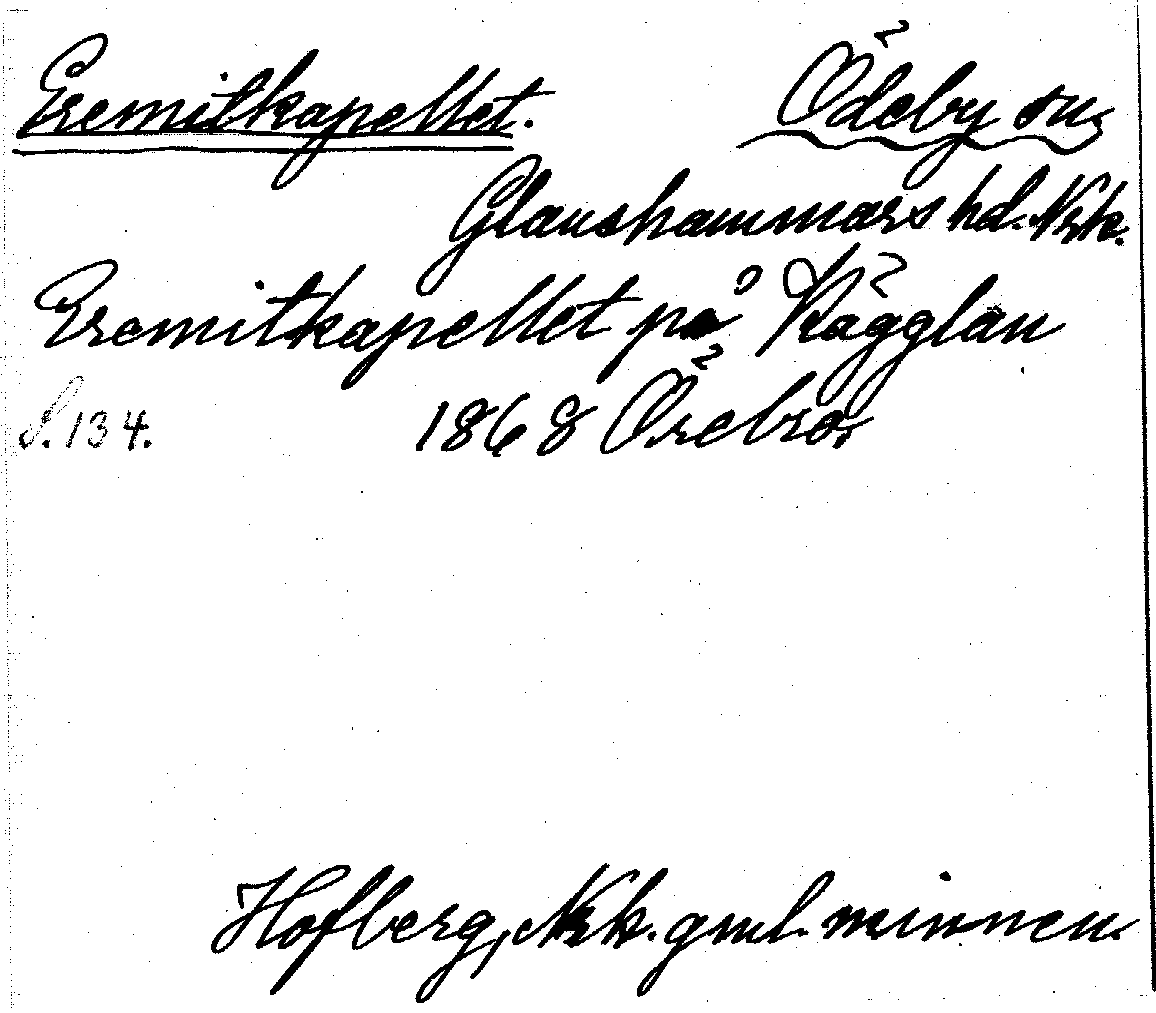 Eremitkapellet. Ödeby sn,
Glanshammars hd. Nrk.
Eremitkapellet på Kägglan
S. 134. 1868 Örebro,
Hofberg, Nrk. gml. minnen.